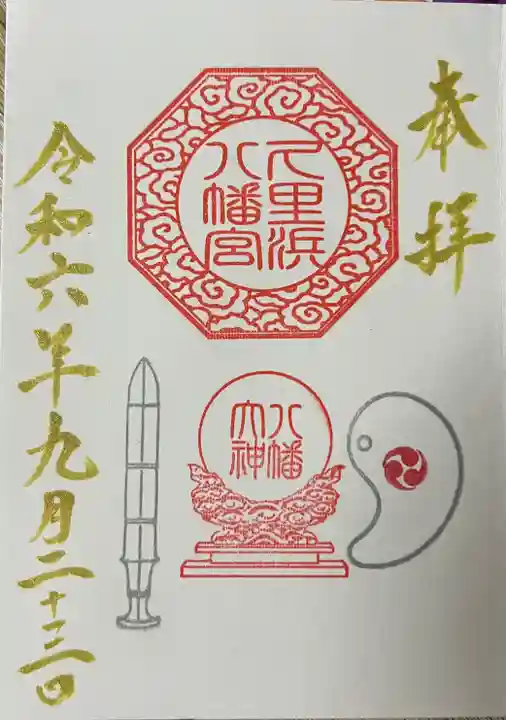 奉拝
久里浜
八幡宮
八幡
大神
令和六年九月二十三日